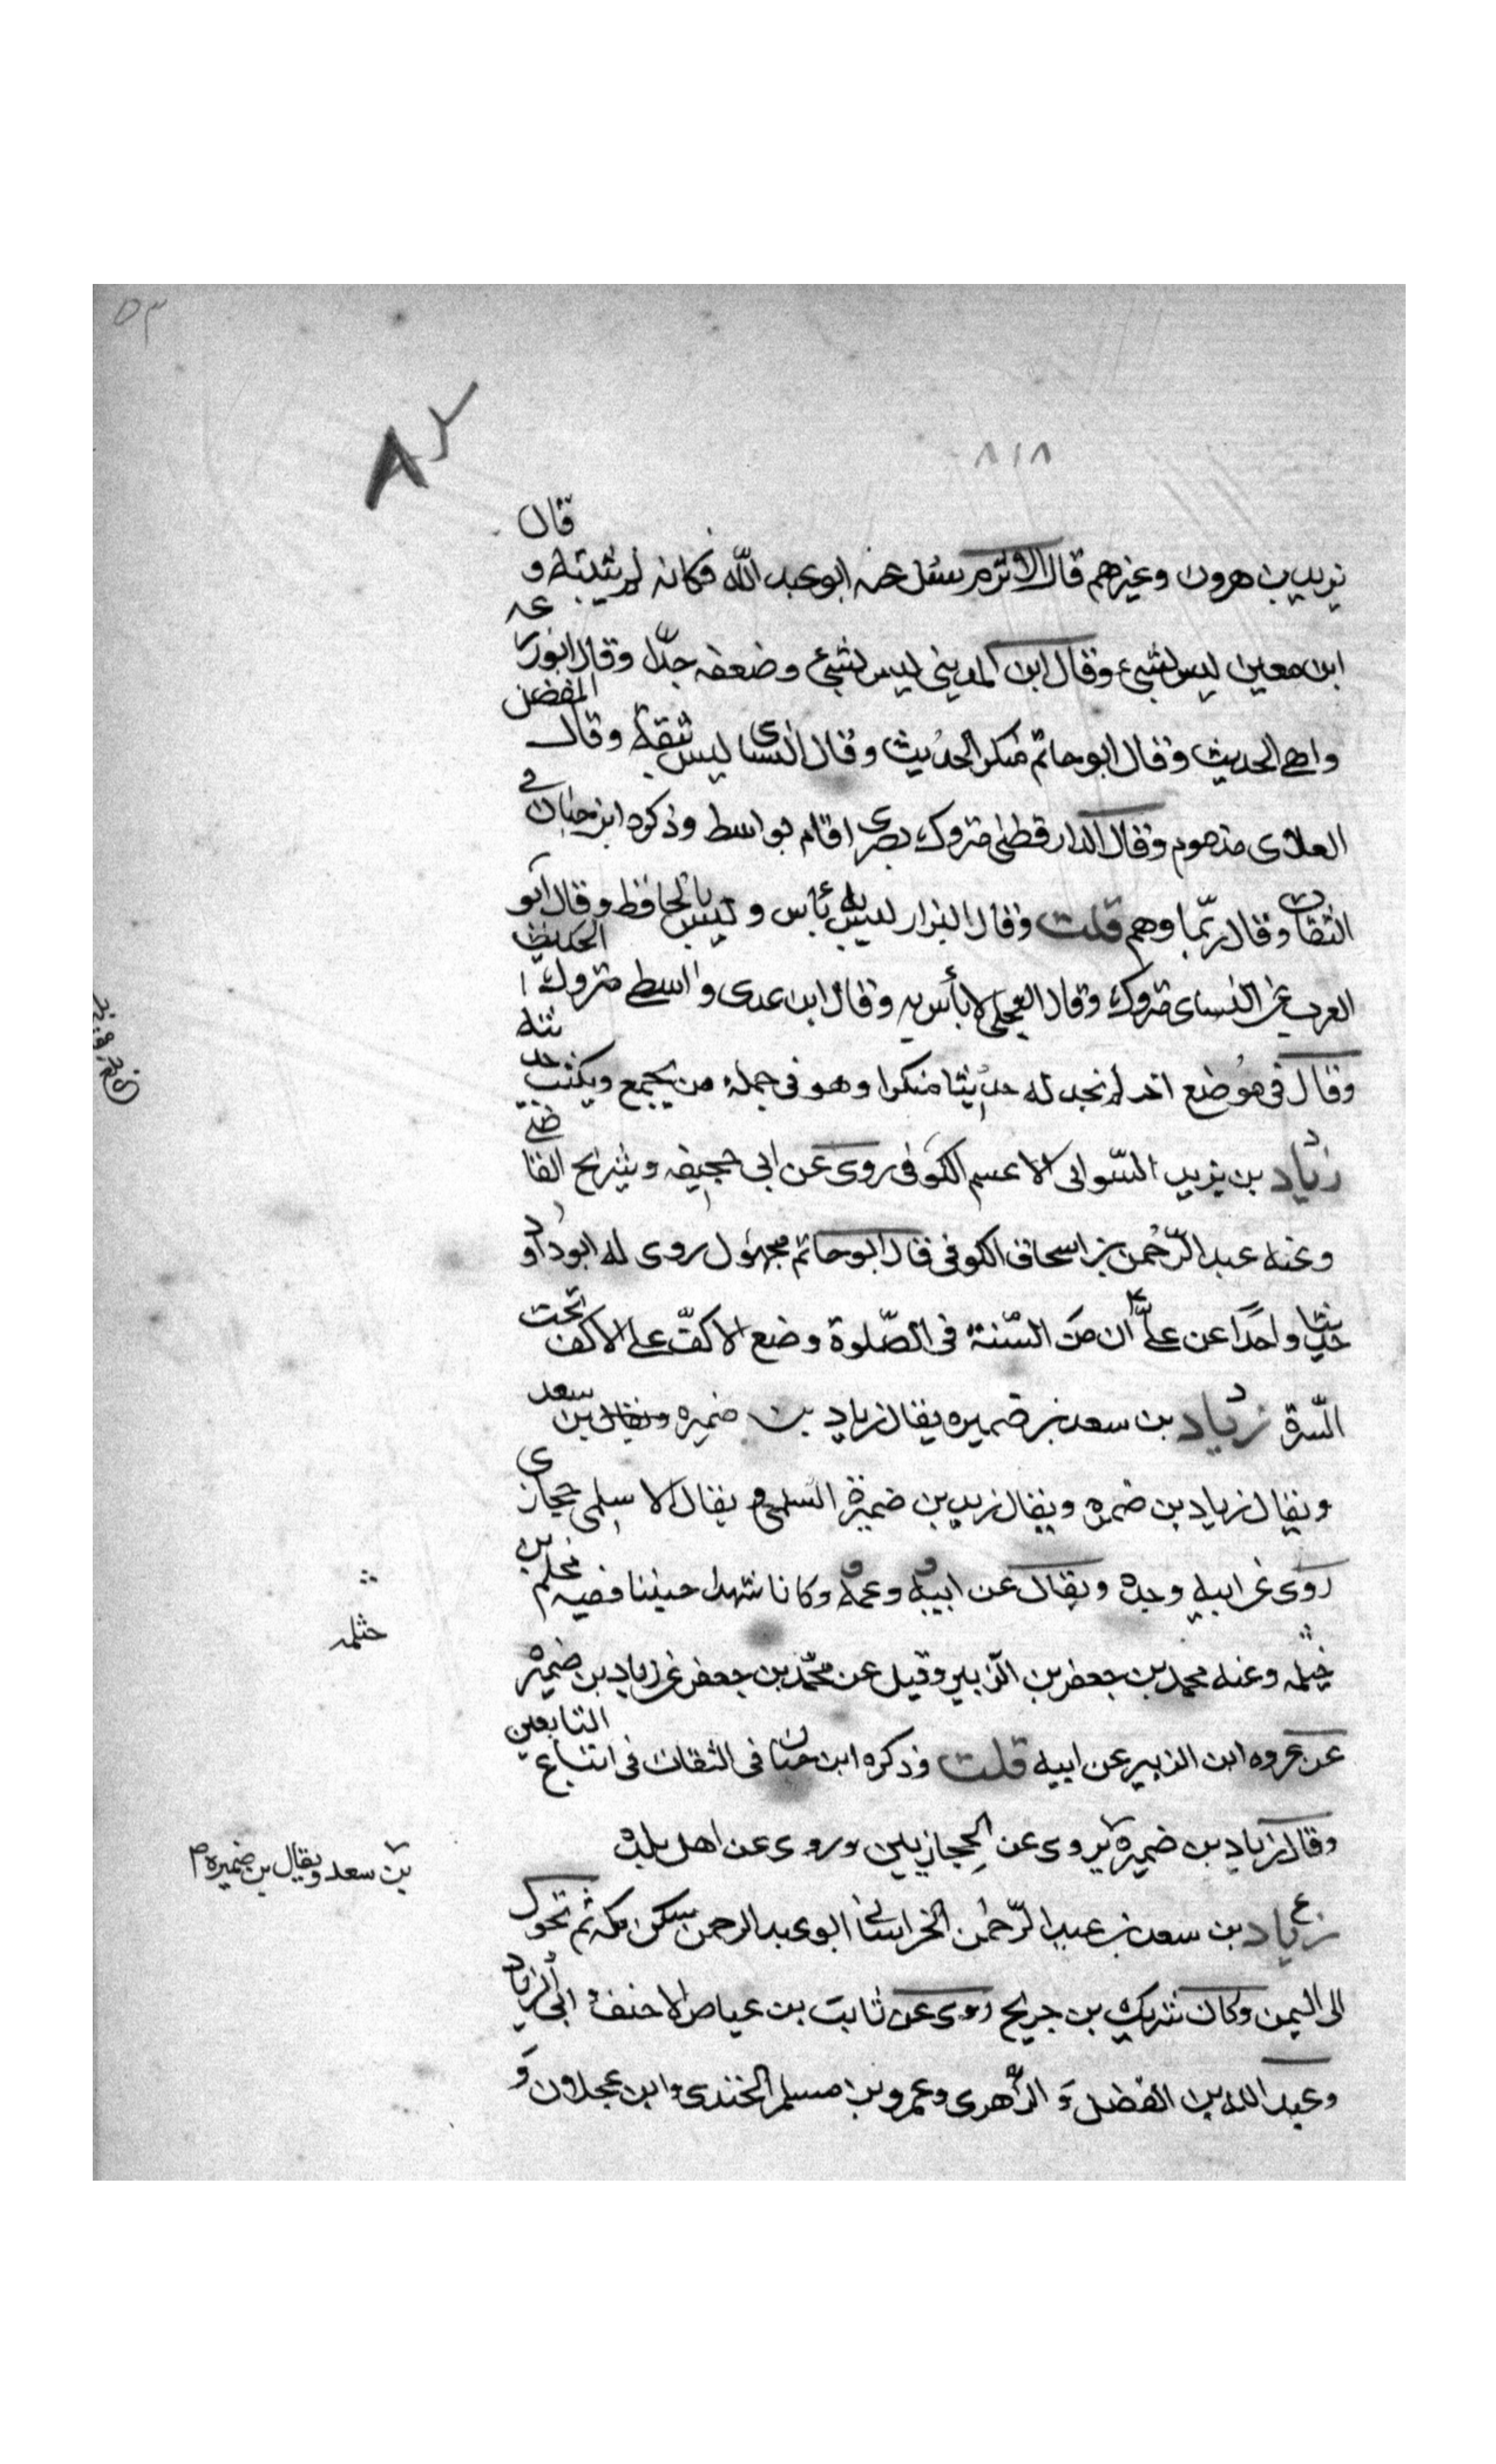 ٥٣
٨٢
٨١٨
يزيد بن هرون وغيرهم قال الاثرم سئل عنه ابو عبد الله فكانه لم يثبته و قال
ابن معين ليس بشيء وقال ابن المديني ليس بشيء وضعفه جدا وقال ابو زرعه
واهي الحديث وقال ابو حاتم منكر الحديث وقال النسائي ليس بثقة وقال المفضل
العلائى مذموم وقال الدارقطني متروك بصرى اقام بواسط وذكره ابن حبان في
الثقات وقال ربما وهم قلت وقال البزار ليس به بأس وليس بالحافظ وقال ابو
العرب عن النسائى متروك الحديث وقال العجلي لا بأس به وقال ابن عدى واسطي متروك
وقال في موضع آخر لم نجد له حديثا منكرا وهو في جملة من يجمع ويكتب حديثه
زياد بن يزيد السوائي الاعسم الكوفى روى عن ابي جحيفه وشريح القاضي
وعنه عبد الرحمن بن اسحاق الكوفى قال ابو حاتم مجهول روى له ابو داود
حديثا واحدا عن علي ان من السنة في الصلوة وضع الاكف على الاكف تحت
السرة زياد بن سعد بن ضميره يقال زياد بن ضميره ويقال بن سعد
ويقال زياد بن ضمره ويقال زيد بن ضميرة السلمي ويقال الاسلمى حجازى
روى عن ابيه وجده ويقال عن ابيه وعمه وكانا شهدا حنينا قصه محلم بن
خيثمه وعنه محمد بن جعفر بن الزبير وقيل عن محمد بن جعفر عن زياد بن ضميره
عن عروه ابن الزبير عن ابيه قلت وذكره ابن حبان في الثقات في اتباع التابعين
وقال زياد بن ضميرة يروى عن الحجازيين وروى عن اهل بلده
زياد بن سعد بن عبد الرحمن الخراساني ابو عبد الرحمن سكن مكه ثم تحول
الى اليمن وكان شريك بن جريح روى عن ثابت بن عياض الاحنف و ابي الزناد
وعبد الله بن الفضل و الزهرى وعمرو بن مسلم الجندى وابن عجلان و
حثمله
بن سعد ويقال بن ضميره